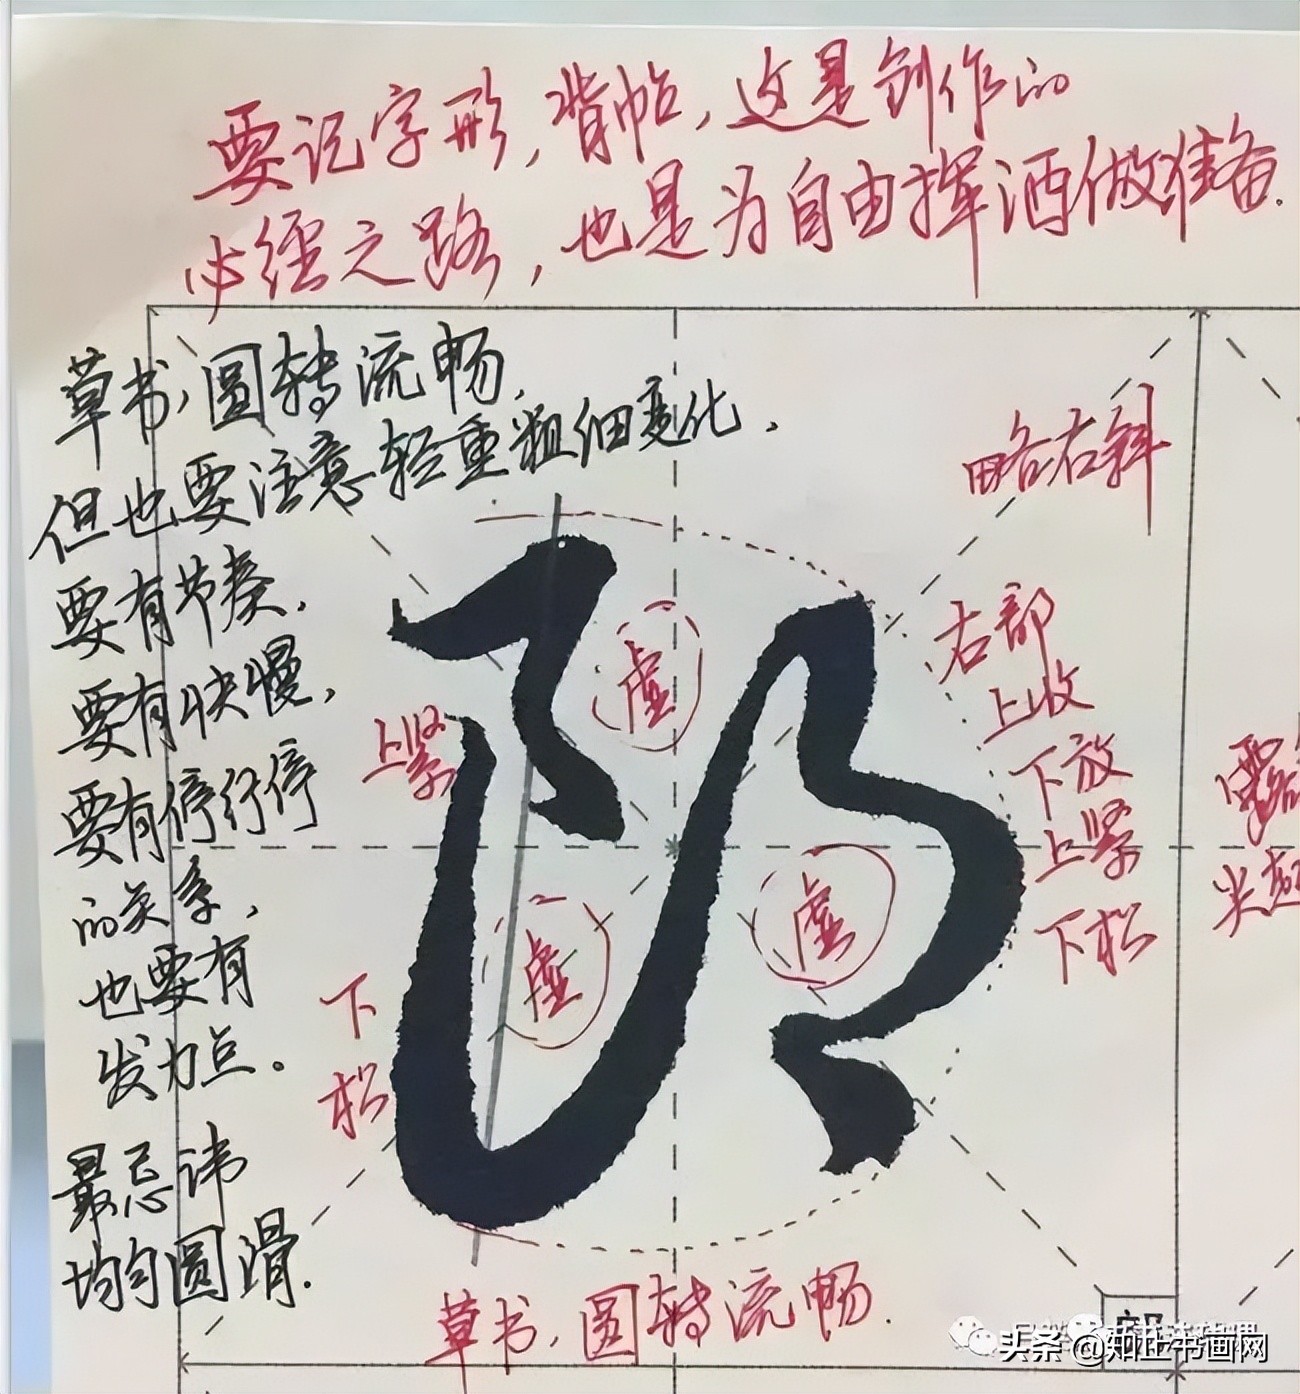 要记字形，背帖，这是创作的
必经之路，也是为自由挥洒做准备.
草书，圆转流畅，
但也要注意轻重粗细变化，
要有节奏，
要有快慢，
要有停行停
的关系，
也要有
发力点。
最忌讳
均匀圆滑.
略右斜
右部
上收
下放
上紧
下松
上紧
下
松
虚
虚
虚
草书，圆转流畅.
头条 @知止书画网